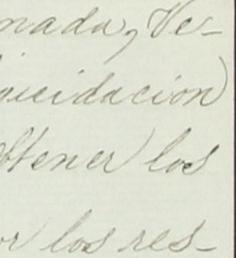 nada, Ve-
quidación
obtener los
or los res-